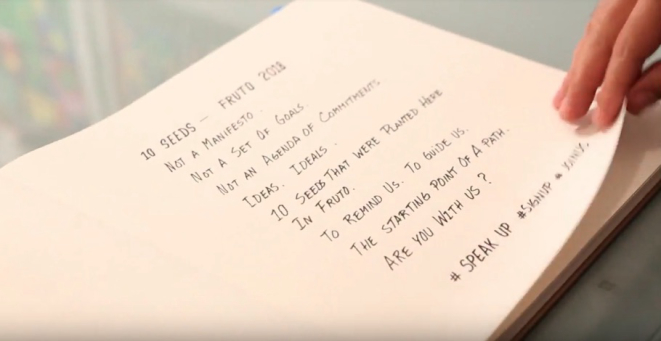 10 SEEDS — FRUTO 2018
NOT A MANIFESTO.
NOT A SET OF GOALS
NOT AN AGENDA OF COMMITMENTS
IDEAS. IDEALS.
10 SEEDS THAT WERE PLANTED HERE
IN FRUTO.
TO REMIND US. TO GUIDE US.
THE STARTING POINT OF A PATH.
ARE YOU WITH US?
# SPEAK UP #SIGNUP #